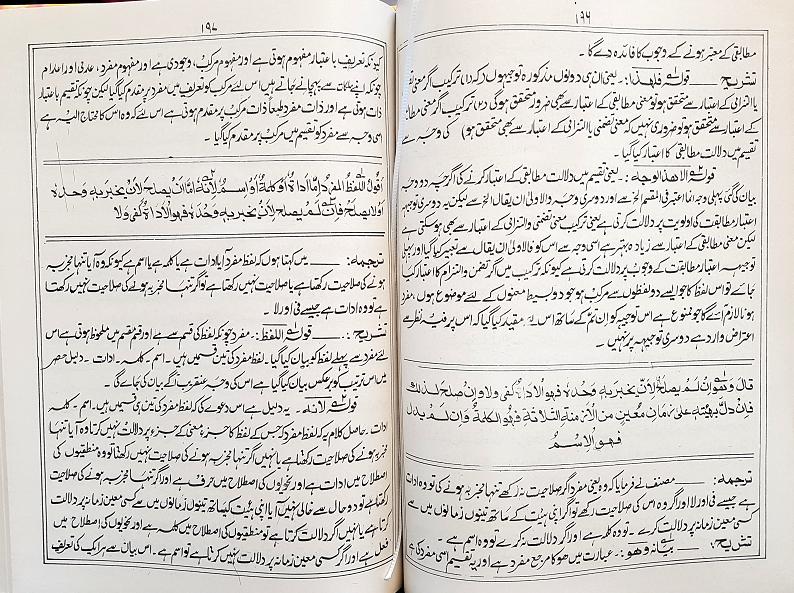 ۱۹۶
مطابقی کے معتبر ہونے کے وجوب کا فائدہ دے گا۔
تشریح:۔ قولہ فلھذا:۔ یعنی ان ہی دونوں مذکورہ توجیہوں کہ (۱) ترکیب اگر معنی تضمنی
یا التزامی کے اعتبار سے متحقق ہو تو معنی مطابقی کے اعتبار سے بھی ضرور متحقق ہوگی (۲) ترکیب اگر معنی مطابقی
کے اعتبار سے متحقق ہو تو ضروری نہیں کہ معنی تضمنی یا التزامی کے اعتبار سے بھی متحقق ہو) کی وجہ سے
تقسیم میں دلالت مطابقی کا اعتبار کیا گیا۔
قولہ الا ھذا الوجہ:۔ یعنی تقسیم میں دلالت مطابقی کے اعتبار کرنے کی اگرچہ دو وجہ
بیان کی گئی پہلی وجہ انما اعتبر فی المقسم الخ سے اور دوسری وجہ والاولی ان یقال الخ سے لیکن یہ دوسری توجیہ
اعتبار مطابقت کی اولویت پر دلالت کرتی ہے یعنی ترکیب معنی تضمنی والتزامی کے اعتبار سے بھی ہو سکتی ہے
لیکن معنی مطابقی کے اعتبار سے زیادہ بہتر ہے اسی وجہ سے اس کو فالاولی ان یقال سے تعبیر کیا گیا اور پہلی
توجیہ اعتبار مطابقت کے وجوب پر دلالت کرتی ہے کیونکہ ترکیب میں اگر تضمن والتزام کا اعتبار کیا
جائے تو اس لفظ کا جو ایسے دو لفظوں سے مرکب ہو جو دو بسیط معنوں کے لئے موضوع ہوں، مفرد
ہونا لازم آئے گا جو ممنوع ہے اس توجیہ کو ان تم کے ساتھ اس لئے مقید کیا گیا کہ اس پر فیہ نظر سے
اعتراض وارد ہے دوسری توجیہ پر نہیں۔
قال وھو ان لم یصلح لان یخبر بہ وحدہ فھو الاداۃ کفی ولا وان صلح لذلک
فان دل بھیئتہ علی زمان معین من الازمنۃ الثلاثۃ فھو الکلمۃ وان لم یدل
فھو الاسم
ترجمہ:۔ مصنف نے فرمایا کہ وہ یعنی مفرد اگر صلاحیت نہ رکھے تنہا مخبر بہ ہونے کی تو وہ ادات
ہے جیسے فی اور لا اور اگر وہ اس کی صلاحیت رکھے تو اگر اپنی ہیئت کے ساتھ تینوں زمانوں میں سے
کسی معین زمانہ پر دلالت کرے۔ تو وہ کلمہ ہے اور اگر دلالت نہ کرے تو وہ اسم ہے۔
تشریح:۔ بیانہ وھو:۔ عبارت میں ھو کا مرجع مفرد ہے اور یہ تقسیم اسی مفرد کی ہے
۱۹۷
کیونکہ تعریف باعتبار مفہوم ہوتی ہے اور مفہوم مرکب، وجودی ہے اور مفہوم مفرد، عدمی اور اعدام
چونکہ اپنے ملکات سے پہچانے جاتے ہیں اس لئے مرکب کو تعریف میں مفرد پر مقدم کیا گیا لیکن چونکہ تقسیم باعتبار
ذات ہوتی ہے اور ذات مفرد طبعاً ذات مرکب پر مقدم ہوتی ہے اس لئے کہ وہ اس کا محتاج الیہ ہے
اسی وجہ سے مفرد کو تقسیم میں مرکب پر مقدم کیا گیا۔
اقول اللفظ المفرد اما اداۃ او کلمۃ او اسم لانہ اما ان یصلح لان یخبر بہ وحدہ
او لا یصلح فان لم یصلح لان یخبر بہ وحدہ فھو الاداۃ کفی ولا
ترجمہ:۔ میں کہتا ہوں کہ لفظ مفرد آیا ادات ہے یا کلمہ ہے یا اسم ہے کیونکہ وہ آیا تنہا مخبر بہ
ہونے کی صلاحیت رکھتا ہے یا صلاحیت نہیں رکھتا ہے تو اگر تنہا مخبر بہ ہونے کی صلاحیت نہیں رکھتا
ہے تو وہ ادات ہے جیسے فی اور لا۔
تشریح:۔ قولہ اللفظ:۔ مفرد چونکہ لفظ کی قسم سے ہے اور قسم مقسم میں ملحوظ ہوتی ہے اس
لئے مفرد سے پہلے لفظ کو بیان کیا گیا۔ لفظ مفرد کی تین قسمیں ہیں۔ اسم۔ کلمہ۔ ادات۔ دلیل حصر
میں اس ترتیب کو برعکس بیان کیا گیا ہے اس کی وجہ عنقریب آگے بیان کی جائے گی۔
قولہ لانہ۔ یہ دلیل ہے اس دعوے کی کہ لفظ مفرد کی تین ہی قسمیں ہیں۔ اسم۔ کلمہ
ادات۔ حاصل کلام یہ کہ لفظ مفرد کہ جس کے لفظ کا جزء معنی کے جزء پر دلالت نہیں کرتا وہ آیا تنہا
مخبر بہ ہونے کی صلاحیت رکھتا ہے یا نہیں اگر تنہا مخبر بہ ہونے کی صلاحیت نہیں رکھتا تو وہ منطقیوں کی
اصطلاح میں ادات ہے اور نحویوں کی اصطلاح میں حرف ہے اور اگر تنہا مخبر بہ ہونے کی صلاحیت
رکھتا ہے تو دو حال سے خالی نہیں آیا اپنی ہیئت کے ساتھ تینوں زمانوں میں سے کسی معین زمانہ پر دلالت
کرتا ہے یا نہیں اگر دلالت کرتا ہے تو منطقیوں کی اصطلاح میں کلمہ ہے اور نحویوں کی اصطلاح میں
فعل ہے اور اگر کسی معین زمانہ پر دلالت نہیں کرتا ہے تو اسم ہے۔ اس بیان سے ہر ایک کی تعریف